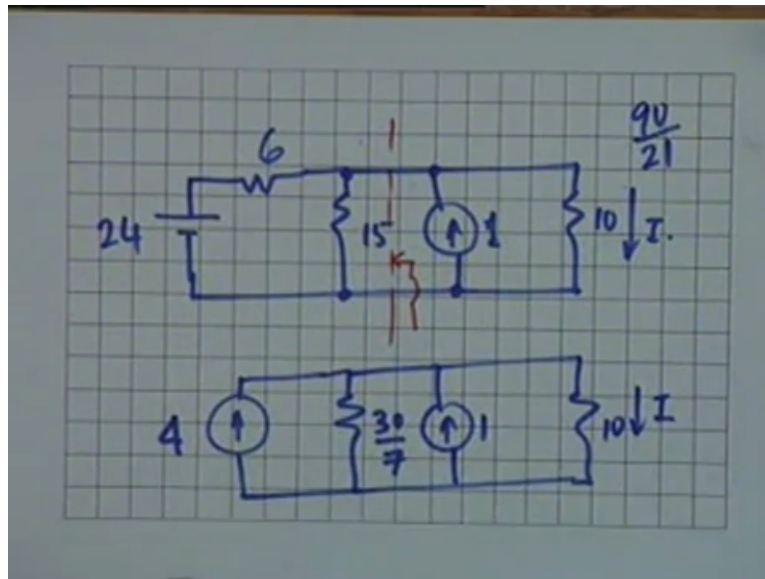 90
21
6
24
15
1
10
I.
4
30
7
1
10
I